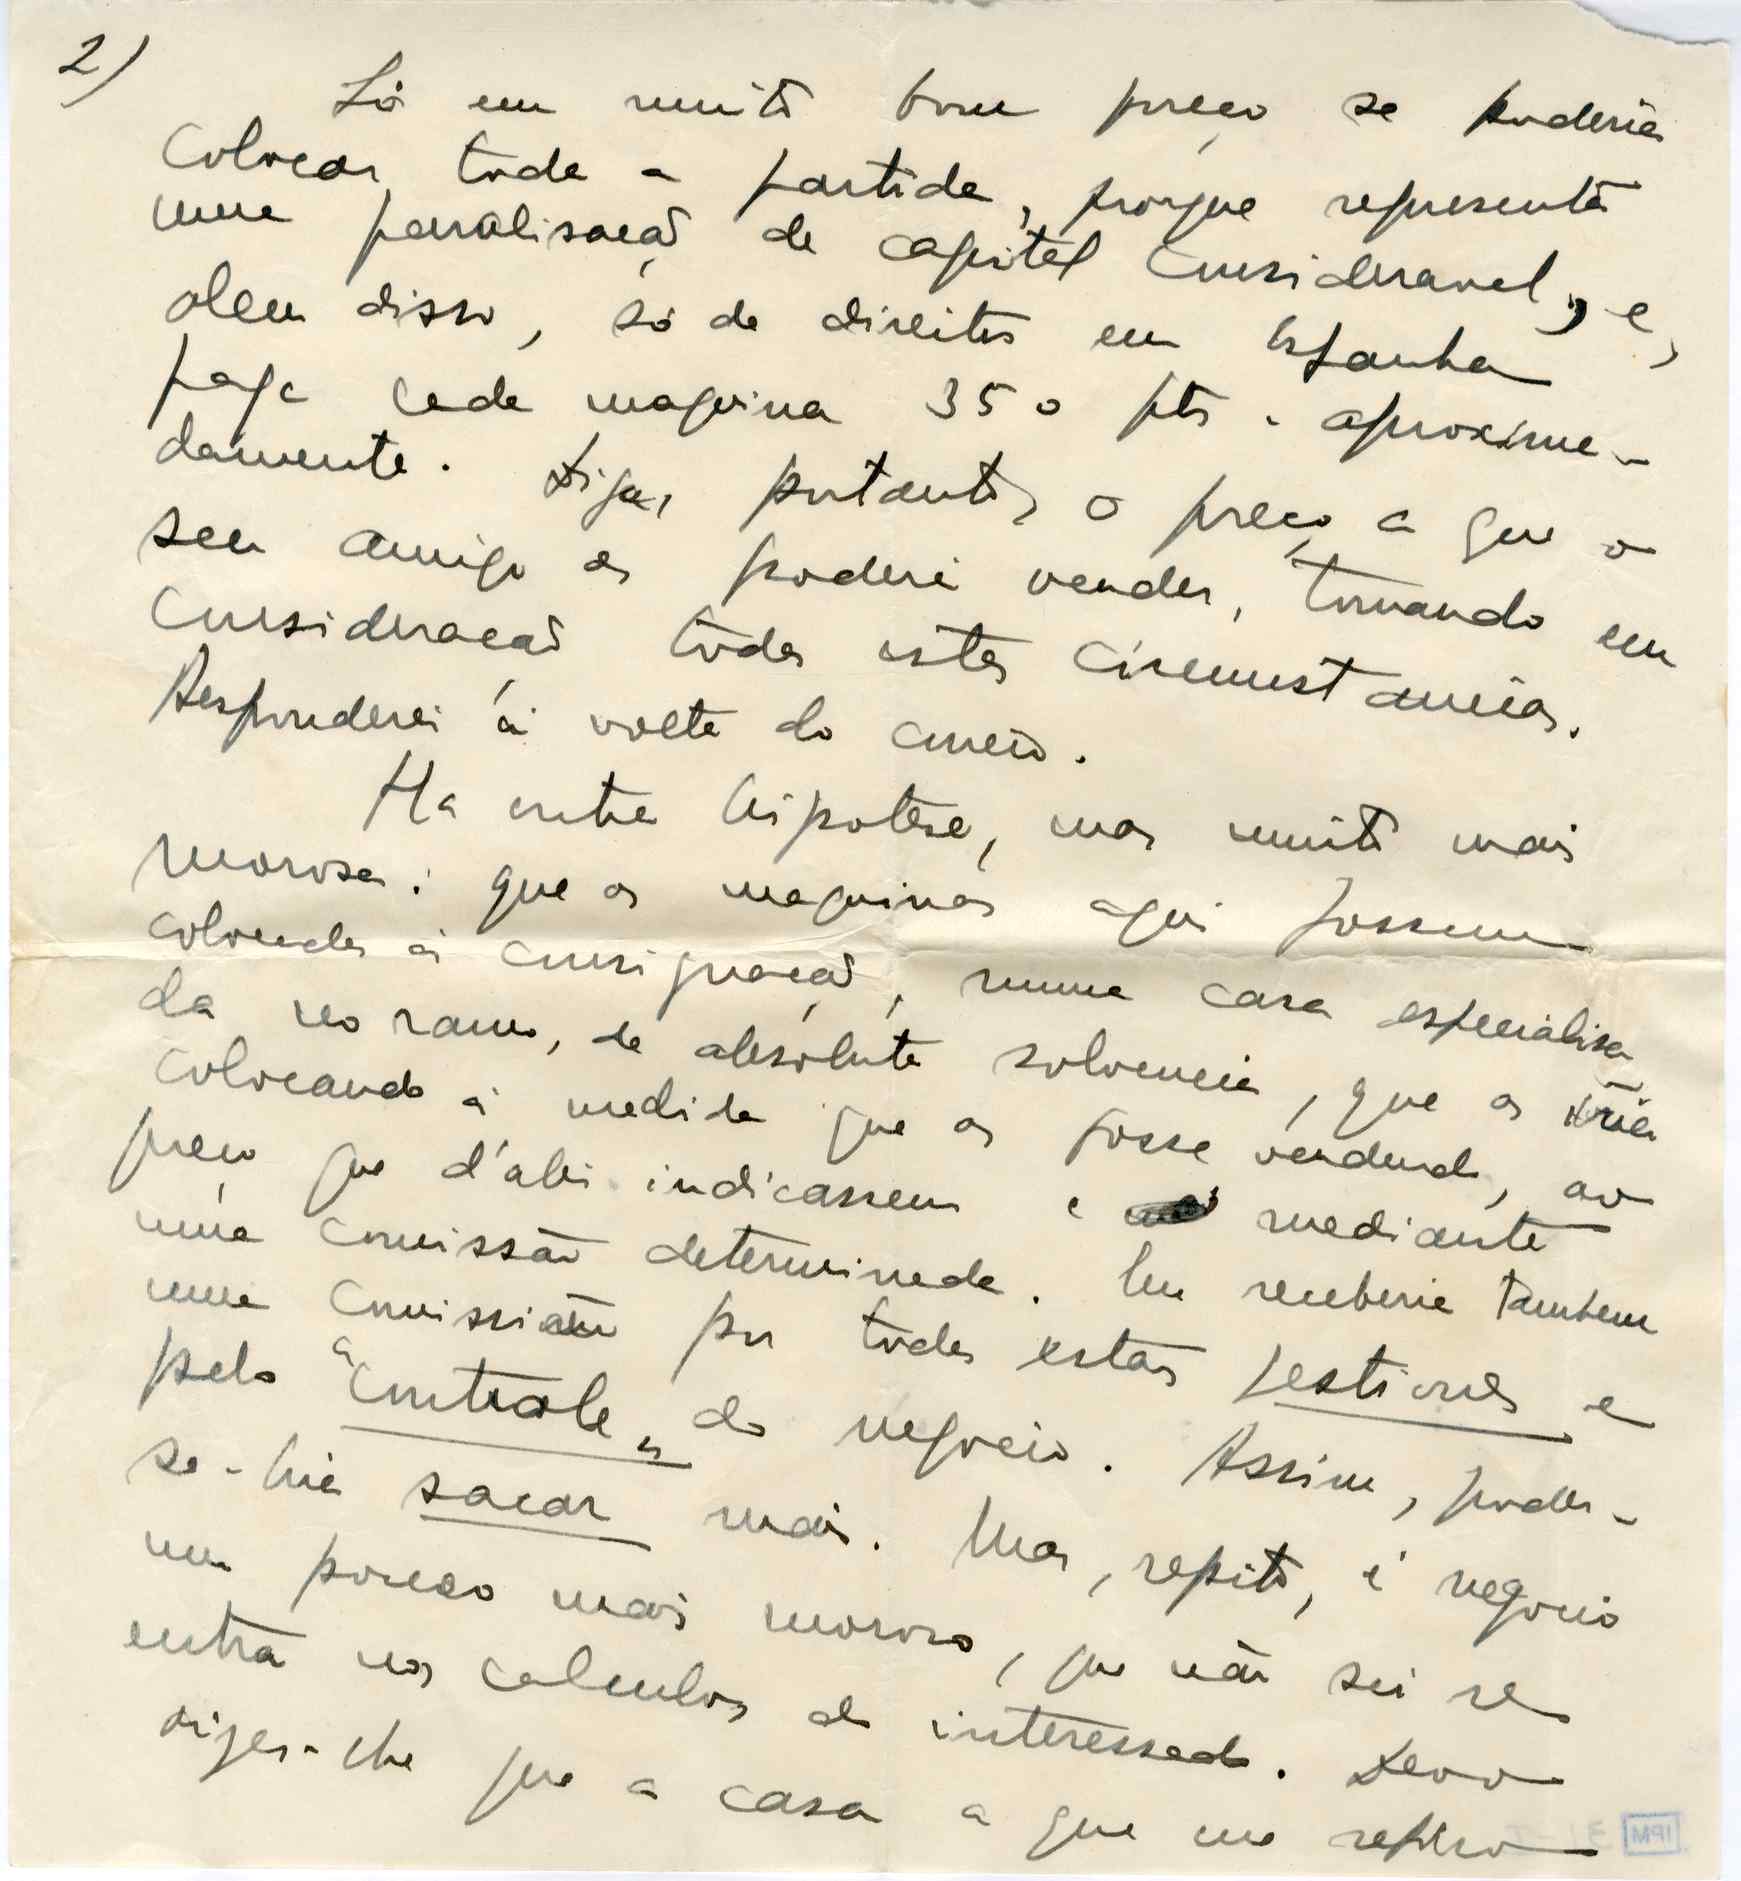 2)
Só em muito bom preço se poderia
colocar toda a partida, porque representa
uma paralisação de capital consideravel, e,
alem disso, só de direitos em Espanha
paga cada maquina 350 pts. aproxima-
damente. Diga, portanto, o preço a que o
seu amigo as poderá vender, tomando em
consideração todas estas circunstancias.
Responderei á volta do correio.
Ha outra hipotese, mas muito mais
morosa: que as maquinas aqui fossem
colocadas á consignação, numa casa especialisa-
da no ramo, de absoluta solvencia, que as iria
colocando á medida que as fosse vendendo, ao
preço que d'ahi indicassem e mediante
uma comissão determinada. Eu receberia tambem
uma comissão por todas estas gestiones e
pelo "controle" do negocio. Assim, poder-
se-hia sacar mais. Mas, repito, é negocio
um pouco mais moroso, que não sei se
entra nos calculos do interessado. Devo
dizer-lhe que a casa a que me refiro
IPM